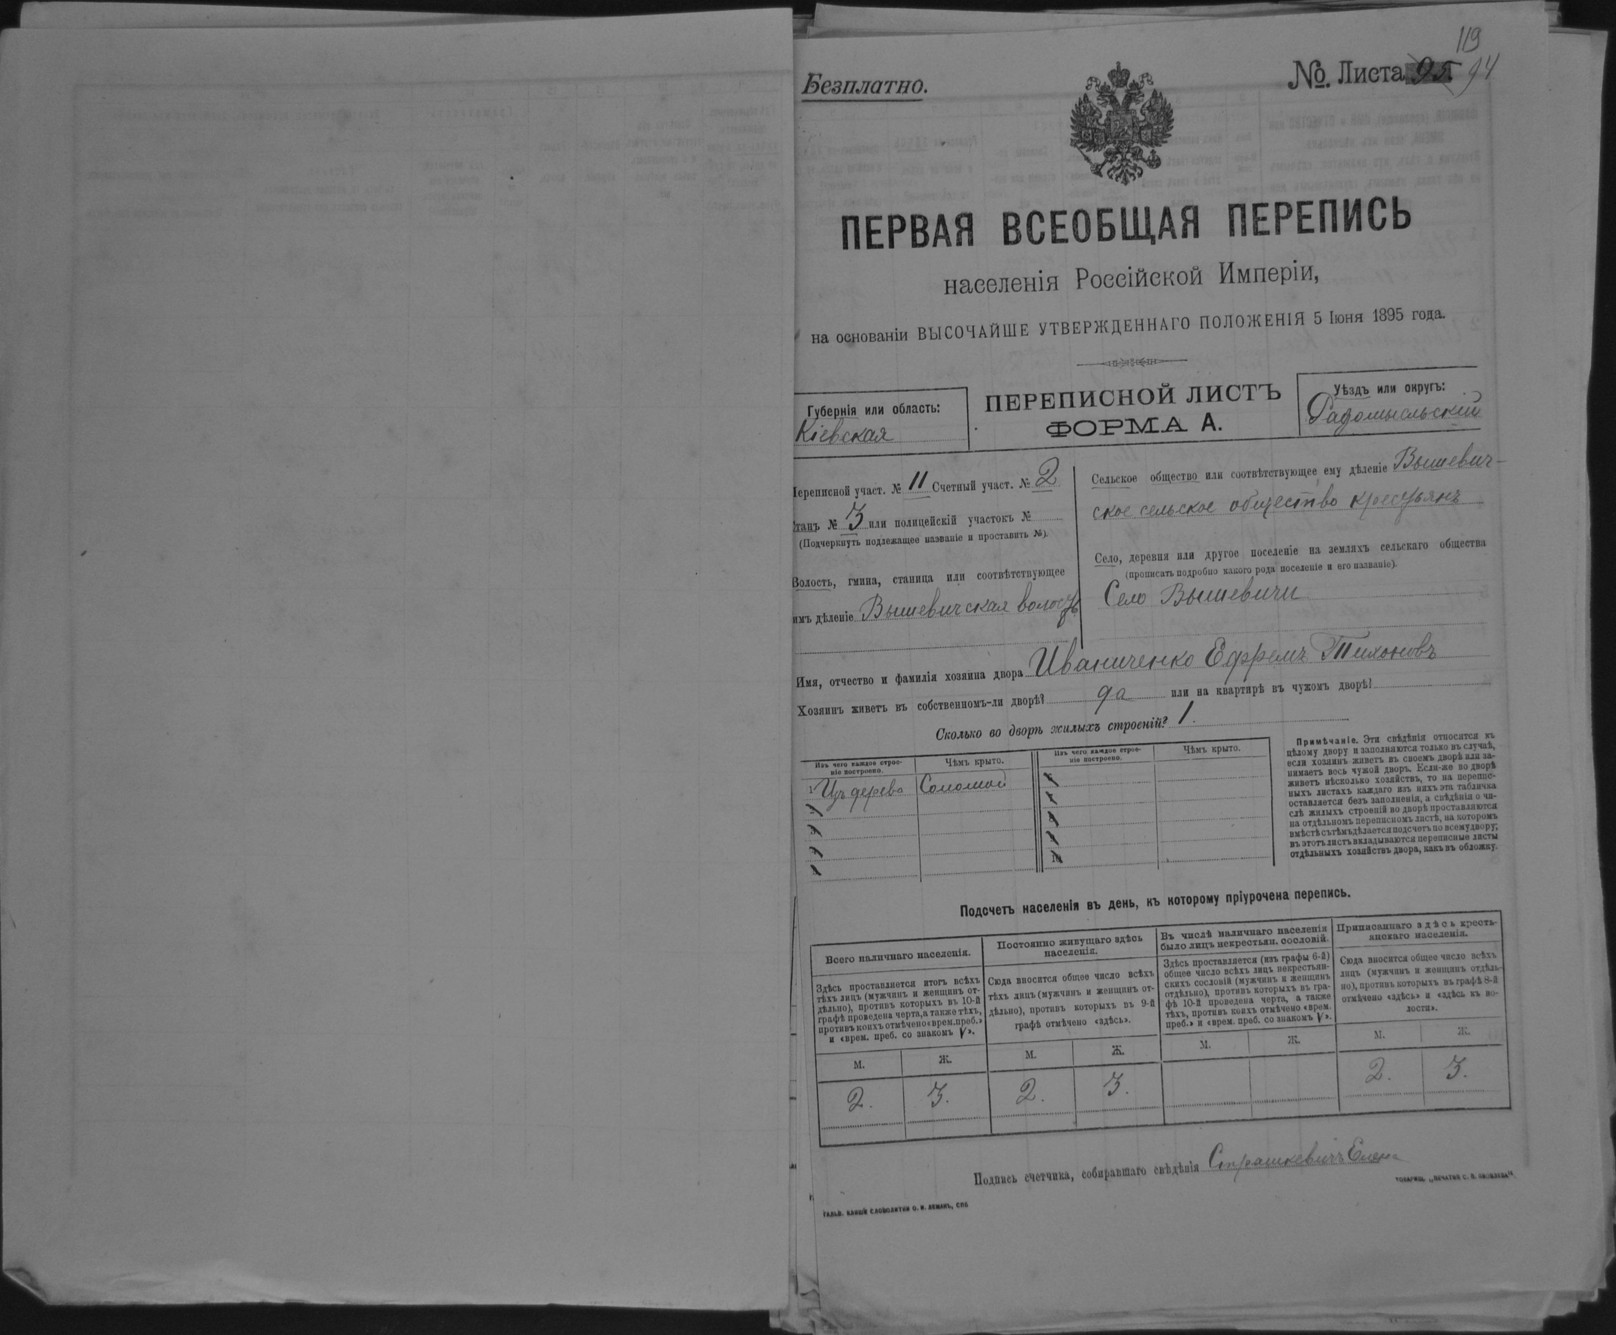 119
Безплатно.
№. Листа 95 94
ПЕРВАЯ ВСЕОБЩАЯ ПЕРЕПИСЬ
населенія Россійской Имперіи,
на основаніи ВЫСОЧАЙШЕ УТВЕРЖДЕННАГО ПОЛОЖЕНІЯ 5 Іюня 1895 года.
Губернія или область:
Кіевская
ПЕРЕПИСНОЙ ЛИСТЪ
ФОРМА А.
Уѣздъ или округъ:
Радомысльскій
Переписной участ. № 11 Счетный участ. № 2
Станъ № 3 или полицейскій участокъ №
(Подчеркнуть подлежащее названіе и проставить №).
Волость, гмина, станица или соотвѣтствующее
имъ дѣленіе Вышевичская волость
Сельское общество или соотвѣтствующее ему дѣленіе Вышевич-
ское сельское общество крестьянъ
Село, деревня или другое поселеніе на земляхъ сельскаго общества
(прописать подробно какого рода поселеніе и его названіе).
Село Вышевичи
Имя, отчество и фамилія хозяина двора Иваниченко Ефремъ Тихоновъ
Хозяинъ живетъ въ собственномъ-ли дворѣ? да или на квартирѣ въ чужомъ дворѣ?
Сколько во дворѣ жилыхъ строеній? 1.
Изъ чего каждое строе-
ніе построено.
Чѣмъ крыто.
Изъ чего каждое строе-
ніе построено.
Чѣмъ крыто.
1 Изъ дерева Соломой
Примѣчаніе. Эти свѣдѣнія относятся къ
цѣлому двору и заполняются только въ случаѣ,
если хозяинъ живетъ въ своемъ дворѣ или за-
нимаетъ весь чужой дворъ. Если-же во дворѣ
живетъ нѣсколько хозяйствъ, то на перепис-
ныхъ листахъ каждаго изъ нихъ эта табличка
оставляется безъ заполненія, а свѣдѣнія о чи-
слѣ жилыхъ строеній во дворѣ проставляются
на отдѣльномъ переписномъ листѣ, на которомъ
вмѣстѣ съ тѣмъ дѣлается подсчетъ по всему двору;
въ этотъ листъ вкладываются переписные листы
отдѣльныхъ хозяйствъ двора, какъ въ обложку.
Подсчетъ населенія въ день, къ которому пріурочена перепись.
Всего наличнаго населенія.
Здѣсь проставляется итогъ всѣхъ
тѣхъ лицъ (мужчинъ и женщинъ от-
дѣльно), противъ которыхъ въ 10-й
графѣ проведена черта, а также тѣхъ,
противъ коихъ отмѣчено «врем. преб.»
и «врем. преб. со знакомъ V».
М. Ж.
2. 3.
Постоянно живущаго здѣсь
населенія.
Сюда вносится общее число всѣхъ
тѣхъ лицъ (мужчинъ и женщинъ от-
дѣльно), противъ которыхъ въ 9-й
графѣ отмѣчено «здѣсь».
М. Ж.
2. 3.
Въ числѣ наличнаго населенія
было лицъ некрестьян. сословій.
Здѣсь проставляется (изъ графы 6-й)
общее число всѣхъ лицъ некрестьян-
скихъ сословій (мужчинъ и женщинъ
отдѣльно), противъ которыхъ въ гра-
фѣ 10-й проведена черта, а также
тѣхъ, противъ коихъ отмѣчено «врем.
преб.» и «врем. преб. со знакомъ V».
М. Ж.
Приписаннаго здѣсь кресть-
янскаго населенія.
Сюда вносится общее число всѣхъ
лицъ (мужчинъ и женщинъ отдѣль-
но), противъ которыхъ въ графѣ 8-й
отмѣчено «здѣсь» и «здѣсь въ во-
лости».
М. Ж.
2. 3.
Подпись счетчика, собиравшаго свѣдѣнія Страшкевичъ